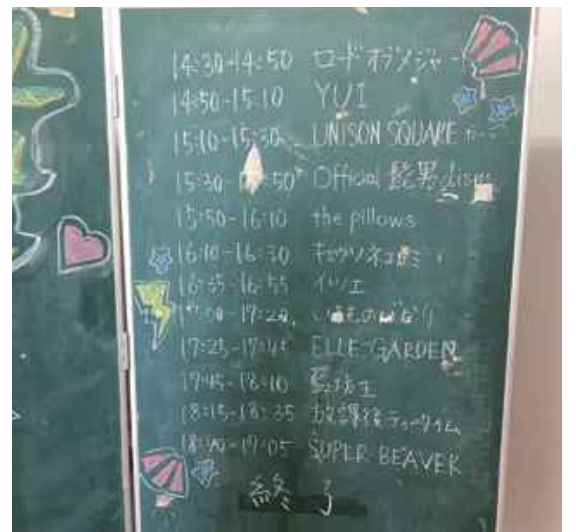 14:30-14:50 ロードオブメジャー
14:50-15:10 YUI
15:10-15:30 UNISON SQUARE
15:30- :50 Official 髭男dism
15:50-16:10 the pillows
16:10-16:30 キュウソネコカミ
16:35-16:55 イツエ
17:00-17:20 いきものがかり
17:25-17:45 ELLEGARDEN
17:45-18:10 藍坊主
18:15-18:35 放課後ティータイム
18:40-19:05 SUPER BEAVER
終了